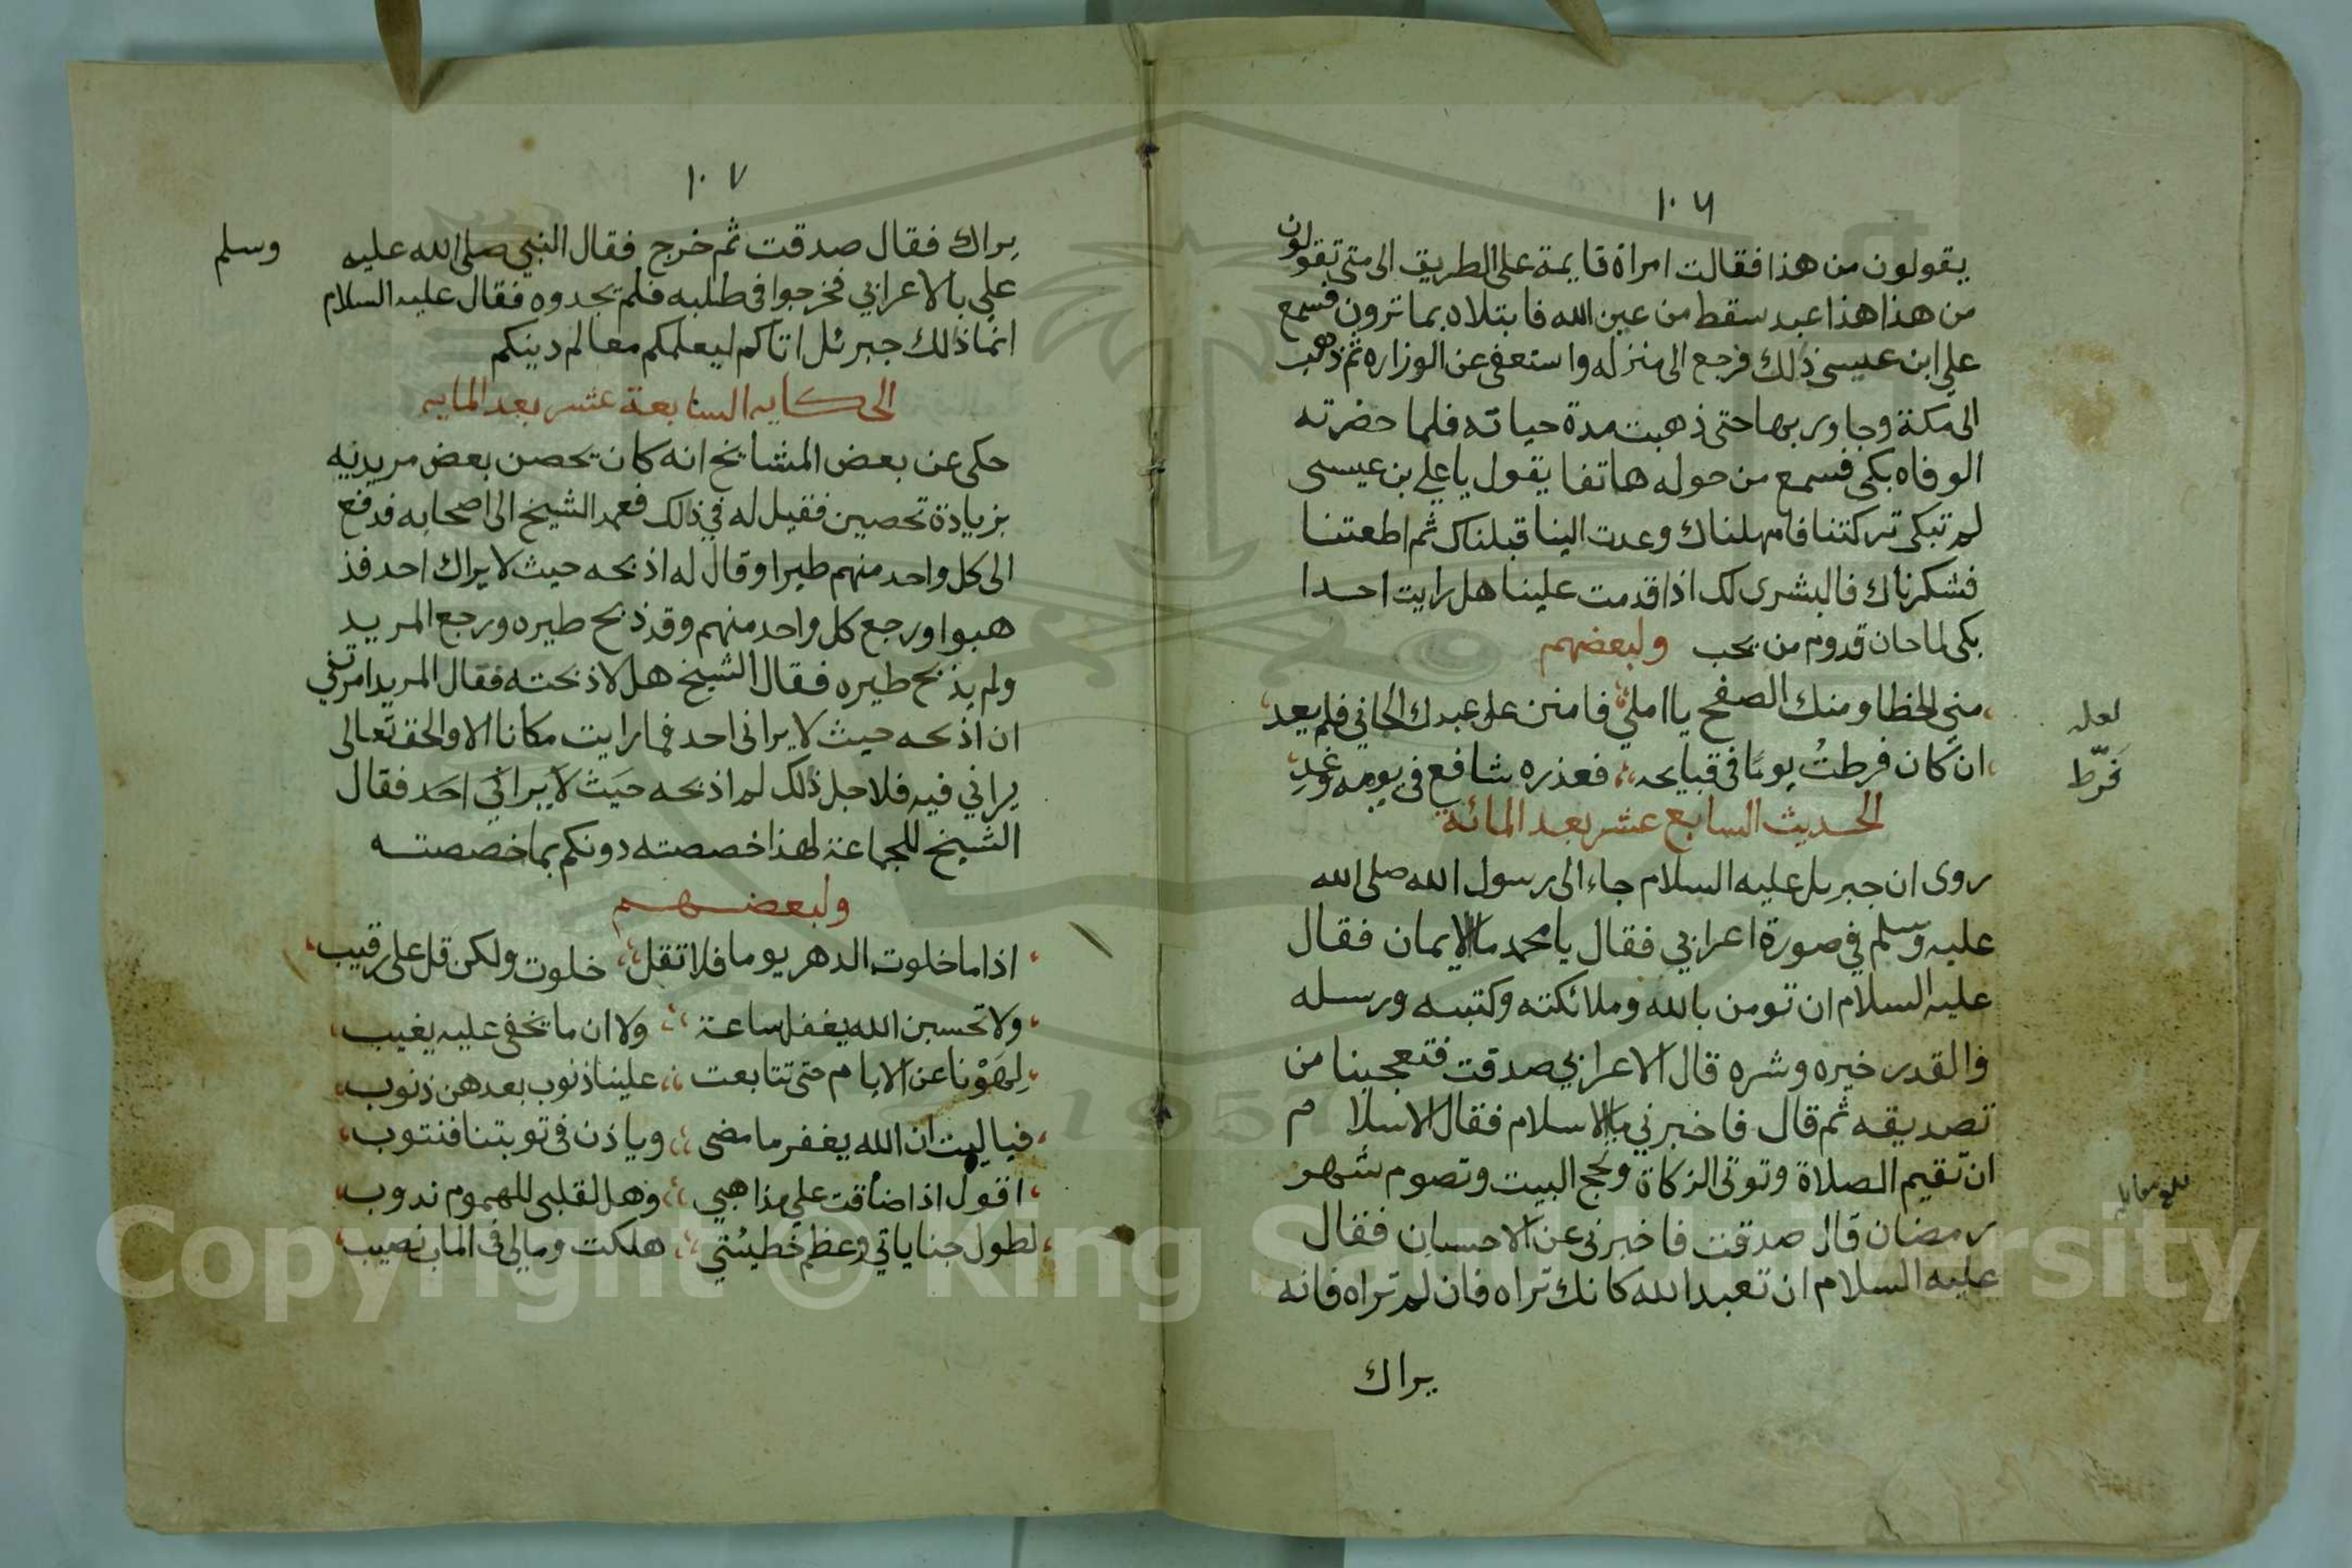 ١٠٦
يقولون من هذا فقالت امراة قايمة على الطريق الى متى تقولون
من هذا هذا عبد سقط من عين الله فابتلاه بما ترون فسمع
علي ابن عيسى ذلك فرجع الى منزله واستعفى عن الوزاره ثم ذهب
الى مكة وجاور بها حتى ذهبت مدة حياته فلما حضرته
الوفاه بكى فسمع من حوله هاتفا يقول يا علي بن عيسى
لم تبكى تركتنا فامهلناك وعدت الينا قبلناك ثم اطعتنا
فشكرناك فالبشرى لك اذا قدمت علينا هل رايت احدا
بكى لما حان قدوم من يحب ولبعضهم
مني الخطا ومنك الصفح يا املي فامنن على عبدك الجاني فلم يعد
لعله
ان كان فرطت يوما في قبايحه فعذره شافع في يومه وغد
فَرّط
الحديث السابع عشر بعد المائة
روى ان جبريل عليه السلام جاء الى رسول الله صلى الله
عليه وسلم في صورة اعرابي فقال يا محمد ما الايمان فقال
عليه السلام ان تومن بالله وملائكته وكتبه ورسله
والقدر خيره وشره قال الاعرابي صدقت فتعجبنا من
تصديقه ثم قال فاخبرني بالاسلام فقال الاسلام
ان تقيم الصلاة وتوتى الزكاة وتحج البيت وتصوم شهر
رمضان قال صدقت فاخبرنى عن الاحسان فقال
عليه السلام ان تعبد الله كانك تراه فان لم تراه فانه
يراك
١٠٧
يراك فقال صدقت ثم خرج فقال النبي صلى الله عليه وسلم
علي بالاعرابي فخرجوا في طلبه فلم يجدوه فقال عليه السلام
انما ذالك جبرئل اتاكم ليعلمكم معالم دينكم
الحكايه السابعة عشر بعد المايه
حكى عن بعض المشايخ انه كان يحصن بعض مريديه
بزيادة تحصين فقيل له في ذالك فعمد الشيخ الى اصحابه فدفع
الى كل واحد منهم طيرا وقال له اذبحه حيث لا يراك احد فذ
هبوا ورجع كل واحد منهم وقد ذبح طيره ورجع المريد
ولم يذبح طيره فقال الشيخ هل لا ذبحته فقال المريد امرتني
ان اذبحه حيث لا يرانى احد فما رايت مكانا الا والحق تعالى
يراني فيه فلاجل ذلك لم اذبحه حيث لا يراني احد فقال
الشيخ للجماعة لهذا خصصته دونكم بما خصصته
ولبعضهم
اذا ما خلوت الدهر يوما فلا تقل خلوت ولكن قل على رقيب
ولا تحسبن الله يغفل ساعة ولا ان ما يخفى عليه يغيب
لهونا عن الايام حتى تتابعت علينا ذنوب بعدهن ذنوب
فيا ليت ان الله يغفر ما مضى وياذن في توبتنا فنتوب
اقول اذا ضاقت علي مذاهبي وهل لقلبى للهموم ندوب
لطول جناياتي وعظم خطيئتي هلكت ومالى في الماب نصيب
Copyright © King Saud University
1957